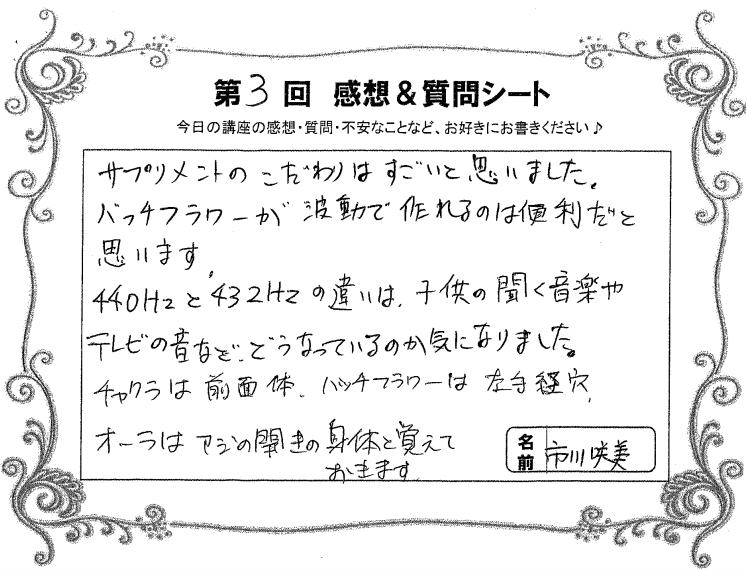 第3回 感想&質問シート
今日の講座の感想・質問・不安なことなど、お好きにお書きください♪
サプリメントのこだわりはすごいと思いました。
バッチフラワーが波動で作れるのは便利だと
思います。
440Hzと432Hzの違いは、子供の聞く音楽や
テレビの音など、どうなっているのか気になりました。
チャクラは前面体、バッチフラワーは左手経穴、
オーラはアジの開きの身体と覚えて
おきます。
名前 市川咲美